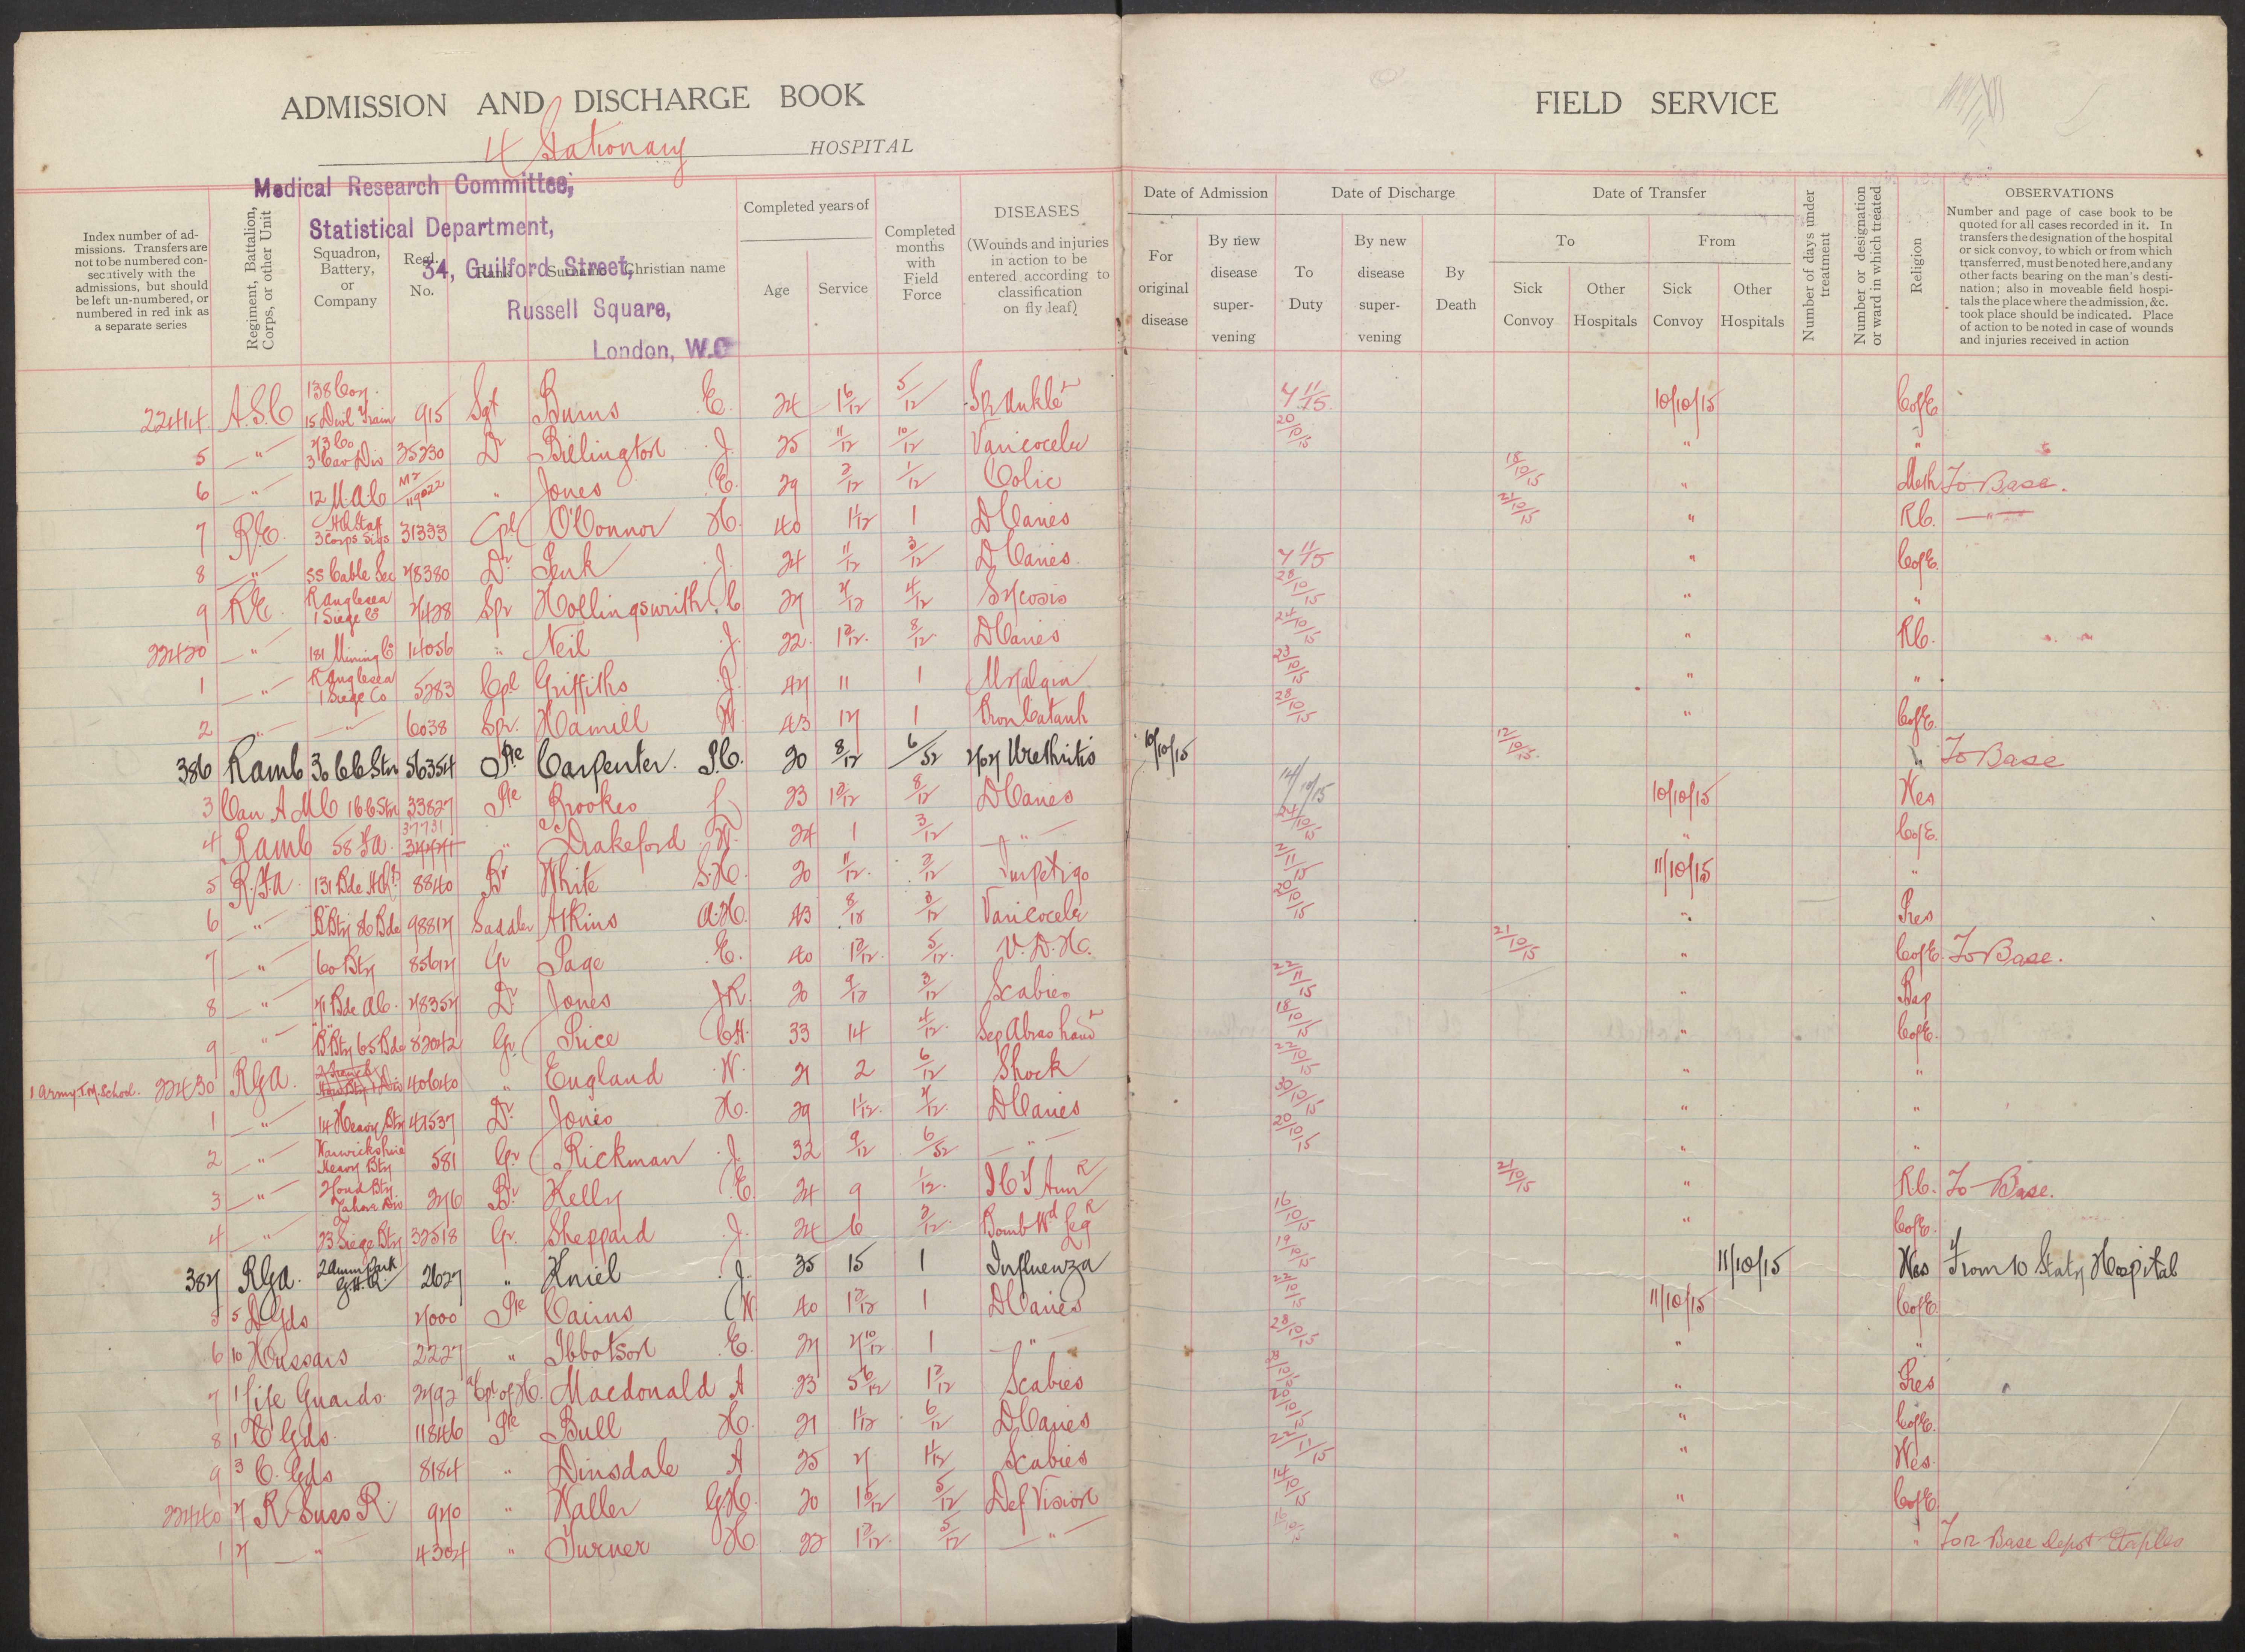 ADMISSION AND DISCHARGE BOOK
4 Stationary HOSPITAL
FIELD SERVICE
Medical Research Committee,
Statistical Department,
34, Guilford Street,
Russell Square,
London, W.C
Index number of admissions. Transfers are not to be numbered consecutively with the admissions, but should be left un-numbered, or numbered in red ink as a separate series
Regiment, Battalion, Corps, or other Unit
Squadron, Battery, or Company
Regl. No.
Rank
Surname
Christian name
Completed years of
Age
Service
Completed months with Field Force
DISEASES
(Wounds and injuries in action to be entered according to classification on fly leaf)
Date of Admission
For original disease
By new disease supervening
Date of Discharge
To Duty
By new disease supervening
By Death
Date of Transfer
To
Sick Convoy
Other Hospitals
From
Sick Convoy
Other Hospitals
Number of days under treatment
Number or designation or ward in which treated
Religion
OBSERVATIONS
Number and page of case book to be quoted for all cases recorded in it. In transfers the designation of the hospital or sick convoy, to which or from which transferred, must be noted here, and any other facts bearing on the man's destination; also in moveable field hospitals the place where the admission, &c. took place should be indicated. Place of action to be noted in case of wounds and injuries received in action
22414 A.S.C 138 Coy. 15 Divl Train 915 Sgt Burns E. 24 1 6/12 5/12 Spr Ankle L 7 11/15 10/10/15 CofE
5 " 73 Co 3 Cav Div 35230 Dr Billington J. 25 11/12 10/12 Varicocele 20/10/15 " "
6 " 12 M.A.C M2/119022 " Jones E. 29 2/12 1/12 Colic 18/10/15 " Meth To Base.
7 R.E. HQ Staff 3 Corps Sigs 31333 Cpl O'Connor H. 40 1 1/12 1 D Caries 21/10/15 " RC. "
8 " 55 Cable Sec 78380 Dr Penk J. 24 11/12 3/12 D Caries. 7 11/15 " CofE.
9 RE. R Anglesea 1 Siege Co 7428 Spr Hollingswrith C 27 7/12 4/12 Sycosis 28/10/15 " "
22420 " 181 Mining Co 14056 " Neil J. 22. 1 2/12. 8/12. D Caries 24/10/15 " RC.
1 " R Anglesea 1 Siege Co 5283 Cpl Griffiths J. 47 11 1 Myalgia 23/10/15 " "
2 " " 6038 Spr. Hamill W. 43 17 1 Bron Catarrh 28/10/15 " CofE.
386 Ramc 30 CCStn 56354 Pte Carpenter. P.C. 20 8/12 6/52 Urethritis 10/10/15 12/10/15 " To Base
3 Can A M C 1 CCStn 33827 Pte Brookes L 23 1 2/12 8/12 D Caries 14/10/15 10/10/15 Wes
4 Ramc 58 Fa. 37731 " Drakeford W. 24 1 3/12 " 24/10/15 " CofE.
5 R.Fa. 131 Bde 8840 Br White S.H. 20 11/12. 2/12 Impetigo 2/11/15 11/10/15 "
6 " B Bty 86 Bde 98817 Saddler Atkins A.H. 43 8/12 3/12 Varicocele 20/10/15 " Pres
7 " 60 Bty 85617 Gr Page E. 40 1 2/12. 5/12. V.D.H. 21/10/15 " CofE. To Base.
8 " 71 Bde AC. 78357 Dr Jones J.R. 20 9/12 3/12 Scabies 22/11/15 " Bap
9 " "B" Bty 65 Bde 82042 Gr. Price C.H. 33 14 4/12. Sep Abras hand L 18/10/15 " CofE.
1 Army. T.M. School. 22430 RGa. 40640 " England W. 21 2 6/12 Shock 22/10/15 " "
1 " 14 Heavy Bty 41537 Dr. Jones H. 29 1 1/12. 7/12. D Caries 30/10/15 " "
2 " Warwickshire Heavy Bty 581 Gr Rickman J. 32 9/12 6/52 " 20/10/15 " "
3 " Lahore Div 246 Br Kelly E. 24 9 1/12. I C T Arm R 21/10/15 " RC. To Base.
4 " 23 Siege Bty 32518 Gr. Sheppard J. 24 6 2/12. Bomb Wd Leg R 16/10/15 " CofE.
387 RGa. 2 Amm Park G.H.Q. 2627 " Kniel J. 35 15 1 Influenza 19/10/15 11/10/15 Wes From 10 Staty Hospital
5 5 D Gds 7000 Pte Cairns W. 40 1 2/12 1 D Caries 22/10/15 11/10/15 CofE.
6 10 Hussars 2227 " Ibbotson E. 27 7 10/12 1 " 28/10/15 " "
7 1 Life Guards 2792 Cpl of H. Macdonald A 23 5 6/12 1 2/12 Scabies " Pres
8 1 C Gds. 11846 Pte Bull H. 21 1 1/12 6/12 D Caries 20/10/15 " CofE.
9 3 C. Gds 8184 " Dinsdale A 25 7 1 1/12 Scabies 22/11/15 " Wes.
22440 7 R Suss R. 970 " Waller G.H. 20 1 5/12 5/12 Def Vision 14/10/15 " CofE
1 7 " 4304 " Turner H. 22 1 2/12. 5/12 " " " For Base Depot Etaples